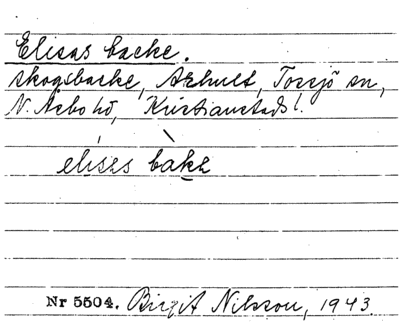 Elisas backe.
skogsbacke, Arhult, Tossjö sn,
N. Åsbo hd, Kristianstads l.
elises bakɛ
Nr 5504. Birgit Nilsson, 1943.